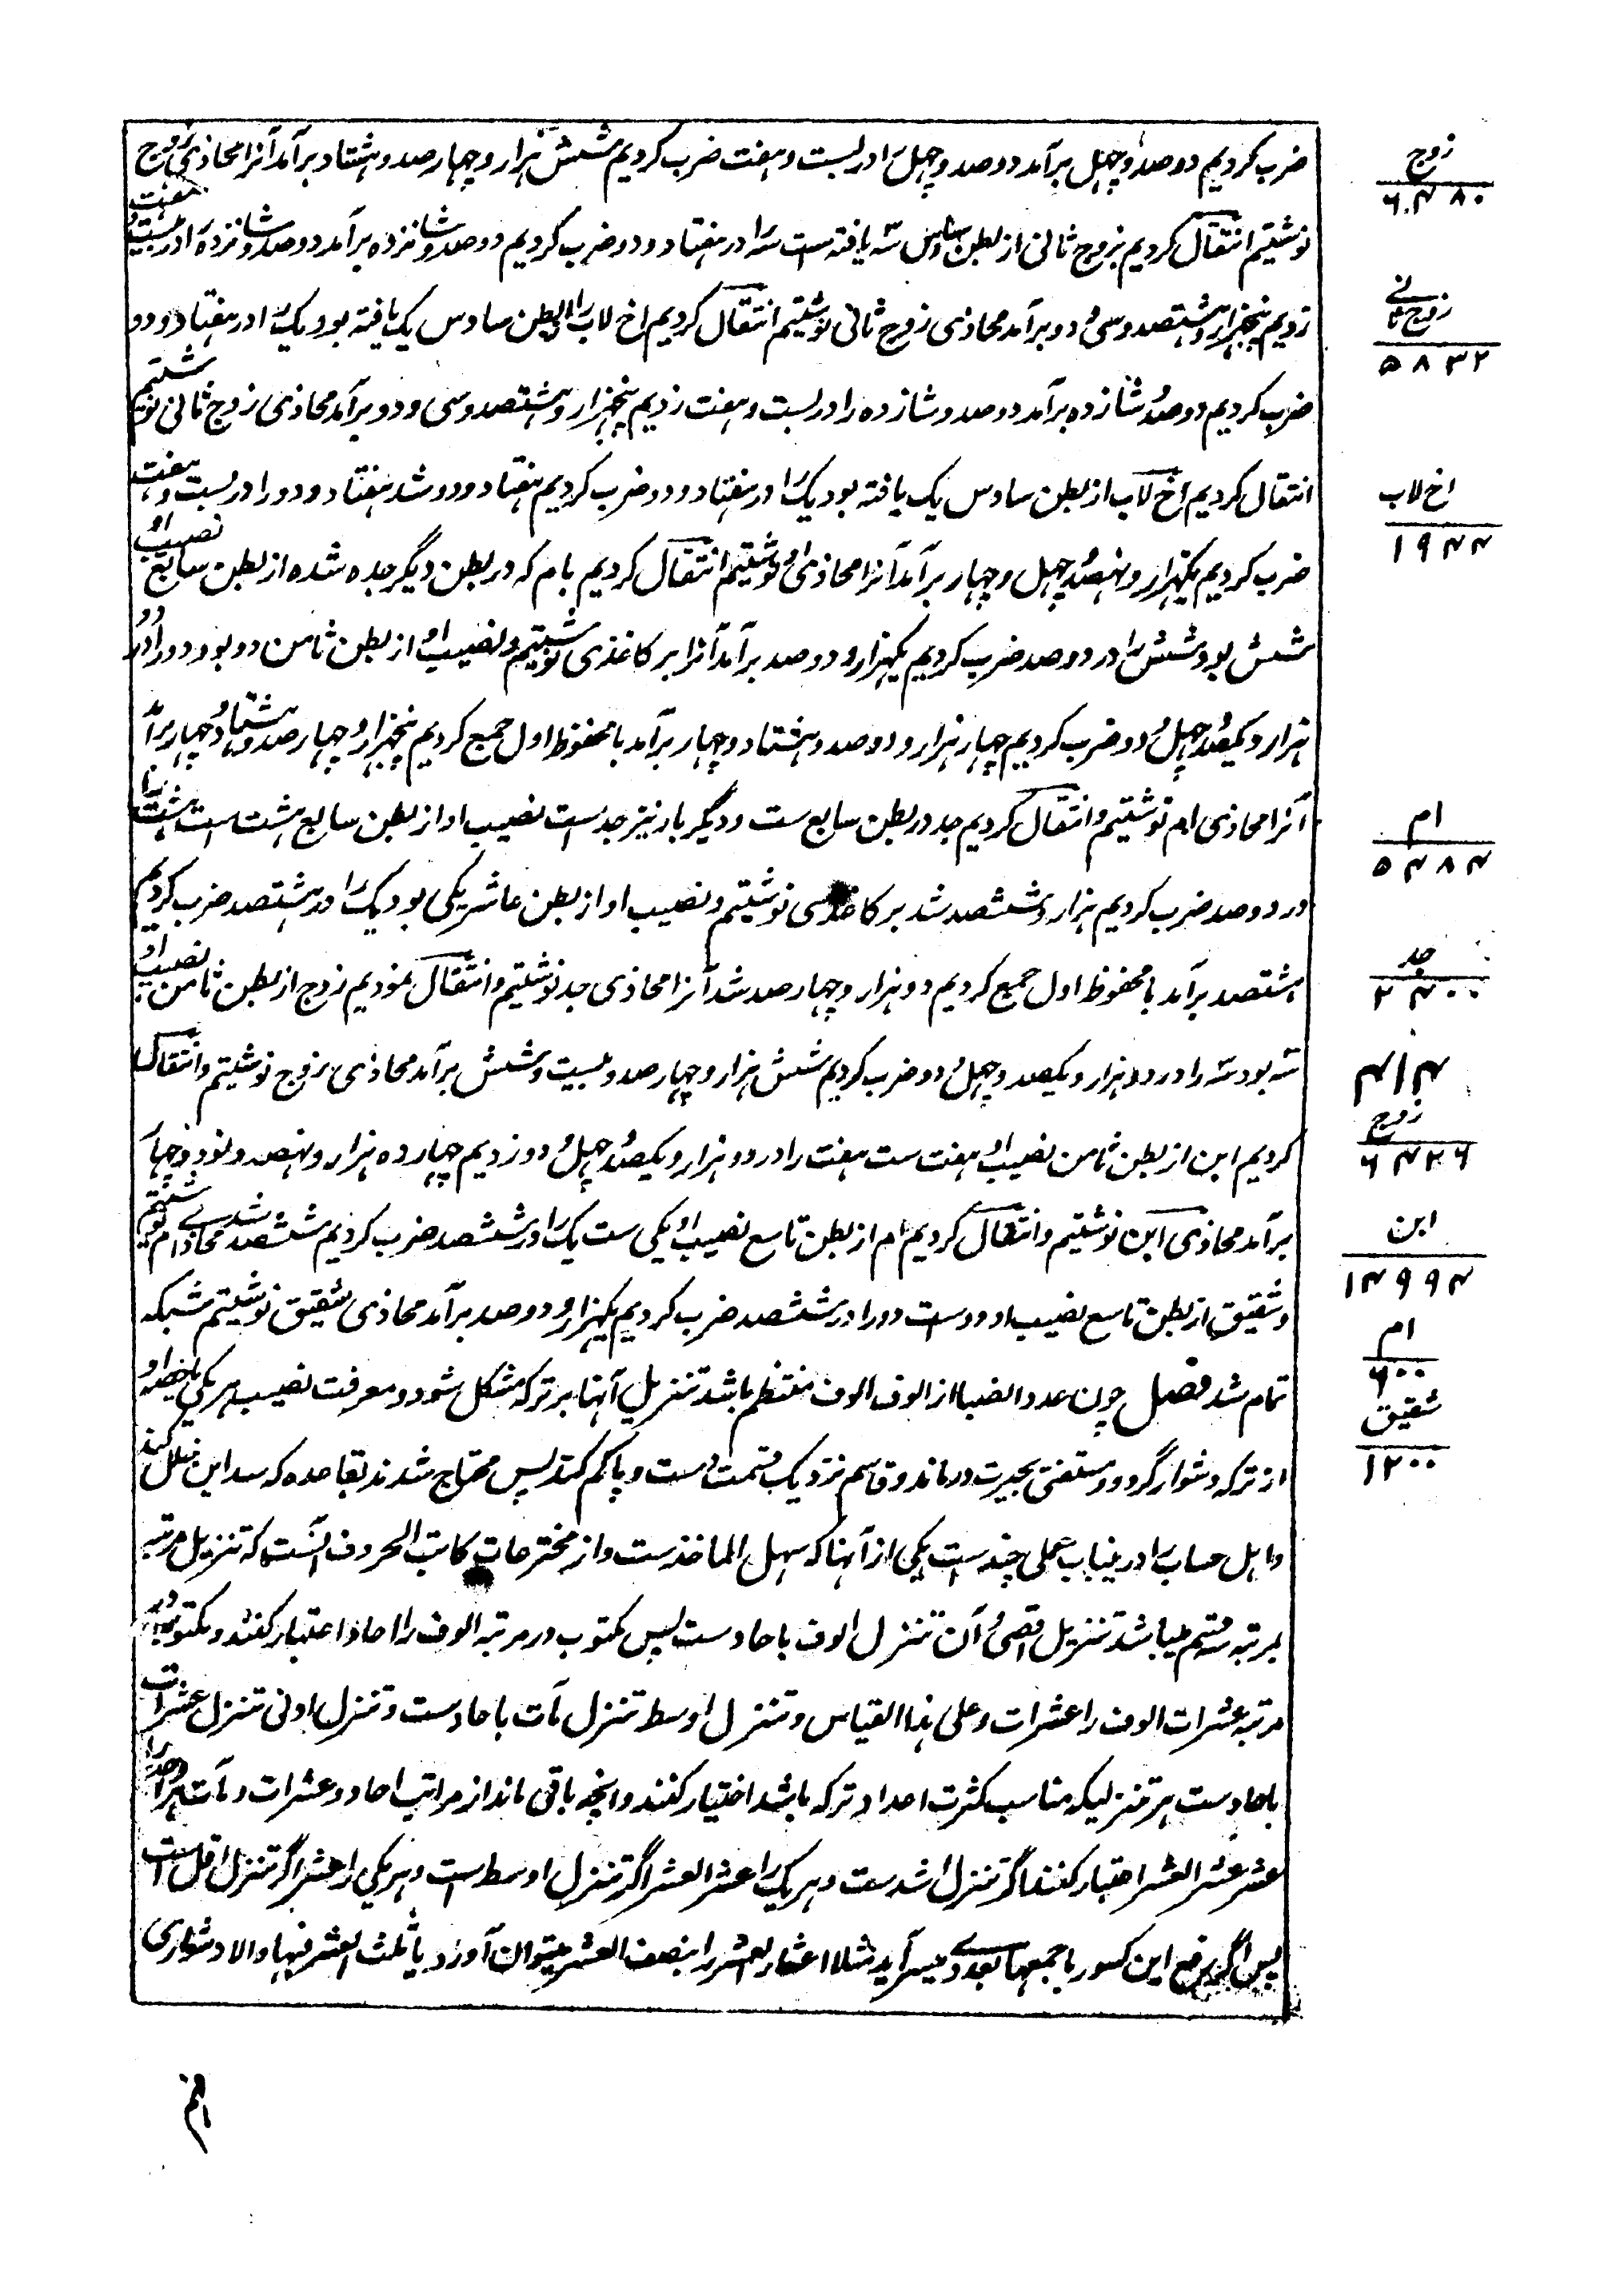 ضرب کردیم دو صد و چهل برآمد دو صد و چهل را در بست و هفت ضرب کردیم شش هزار و چهار صد و هشتاد برآمد آنرا محاذی زوج
نوشتیم انتقال کردیم بزوج ثانی از بطن سادس سه یافته است سه را در هفتاد و دو ضرب کردیم دو صد و شانزده برآمد دو صد و شانزده را در بست و هفت
زدیم پنجهزار و هشتصد و سی و دو برآمد محاذی زوج ثانی نوشتیم انتقال کردیم اخ لاب را از بطن سادس یک یافته بود یک را در هفتاد و دو
ضرب کردیم دو صد و شانزده برآمد دو صد و شانزده را در بست و هفت زدیم پنجهزار و هشتصد و سی و دو برآمد محاذی زوج ثانی نوشتیم
انتقال کردیم اخ لاب از بطن سادس یک یافته بود یک را در هفتاد و دو ضرب کردیم هفتاد و دو شد هفتاد و دو را در بست و هفت
ضرب کردیم یکهزار و نهصد و چهل و چهار برآمد آنرا محاذی او نوشتیم انتقال کردیم بام که در بطن دیگر جده شده از بطن سابع نصیب او
شش بود شش را در دو صد ضرب کردیم یکهزار و دو صد برآمد آنرا بر کاغذی نوشتیم و نصیب او از بطن ثامن دو بود دو را در دو
هزار و یکصد و چهل و دو ضرب کردیم چهار هزار و دو صد و هشتاد و چهار برآمد با محفوظ اول جمع کردیم پنجهزار و چهار صد و هشتاد و چهار برآمد
آنرا محاذی ام نوشتیم و انتقال کردیم جد در بطن سابع ست و دیگر بار نیز جد ست نصیب او از بطن سابع هشت است هشت را
در دو صد ضرب کردیم هزار و ششصد شد بر کاغذی نوشتیم و نصیب او از بطن عاشر یکی بود یک را در هشتصد ضرب کردیم
هشتصد برآمد با محفوظ اول جمع کردیم دو هزار و چهار صد شد آنرا محاذی جد نوشتیم و انتقال نمودیم زوج از بطن ثامن نصیب او
سه بود سه را در دو هزار و یکصد و چهل و دو ضرب کردیم شش هزار و چهار صد و بیست و شش برآمد محاذی زوج نوشتیم و انتقال
کردیم ابن از بطن ثامن نصیب او هفت ست هفت را در دو هزار و یکصد و چهل و دو زدیم چهارده هزار و نهصد و نود و چهار
برآمد محاذی ابن نوشتیم و انتقال کردیم ام از بطن تاسع نصیب او یکی ست یک را در ششصد ضرب کردیم ششصد شد محاذی ام نوشتیم
و شقیق از بطن تاسع نصیب او دو است دو را در ششصد ضرب کردیم یکهزار و دو صد برآمد محاذی شقیق نوشتیم شبکه
تمام شد فصل چون عدد انصبا از الوف الوف منتظم باشد تنزیل آنها بر ترکه مشکل شود و معرفت نصیب هر یکی
از ترکه دشوار گردد و مستفتی بحیرت در ماند و قاسم نزدیک قسمت دست و پا گم کند پس محتاج شدند بقاعده که سد این خلل کند
و اهل حساب را درینباب عملی چند ست یکی از آنها که سهل الماخذ ست و از مخترعات کاتب الحروف آنست که تنزیل مرتبه
بمرتبه سه قسم میباشد تنزیل اقصی و آن تنزل الوف باحاد ست پس مکتوب در مرتبه الوف را احاد اعتبار کنند و مکتوب در
مرتبه عشرات الوف را عشرات و علی هذا القیاس و تنزل اوسط تنزل مآت باحاد ست و تنزل ادنی تنزل عشرات
باحاد ست هر تنزلیکه مناسب کثرت اعداد ترکه باشد اختیار کنند و انچه باقی ماند از مراتب احاد و عشرات و مآت هر واحد را
عشر عشر العشر اعتبار کنند اگر تنزل اشد ست و هر یک را عشر العشر اگر تنزل اوسط است و هر یکی را عشر اگر تنزل اقل است
پس اگر رفع این کسور باجمعها بعددی میسر آید مثلا اعشار العشر را بنصف العشر میتوان آورد یا ثلث العشر فبها والا دشواری
زوج
۶۴۸۰
زوج ثانی
۵۸۳۲
اخ لاب
۱۹۴۴
ام
۵۴۸۴
جد
۲۴۰۰
زوج
۶۴۲۶
ابن
۱۴۹۹۴
ام
۶۰۰
شقیق
۱۲۰۰